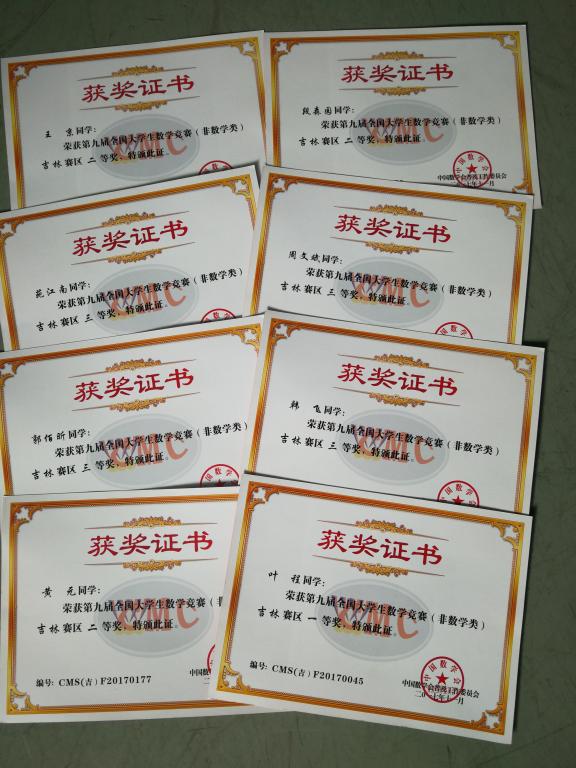 获奖证书
王 京同学：
荣获第九届全国大学生数学竞赛（非数学类）
吉林赛区 二 等奖，特颁此证。
获奖证书
段森园同学：
荣获第九届全国大学生数学竞赛（非数学类）
吉林赛区 二 等奖，特颁此证。
中国数学会普及工作委员会
获奖证书
苑江南同学：
荣获第九届全国大学生数学竞赛（非数学类）
吉林赛区 三 等奖，特颁此证。
获奖证书
周文斌同学：
荣获第九届全国大学生数学竞赛（非数学类）
吉林赛区 三 等奖，特颁此证。
获奖证书
郭佰昕同学：
荣获第九届全国大学生数学竞赛（非数学类）
吉林赛区 三 等奖，特颁此证。
获奖证书
韩 飞同学：
荣获第九届全国大学生数学竞赛（非数学类）
吉林赛区 三 等奖，特颁此证。
中国数学会
获奖证书
黄 元同学：
荣获第九届全国大学生数学竞赛（非数学类）
吉林赛区 二 等奖，特颁此证。
编号：CMS(吉)F20170177
获奖证书
叶 程同学：
荣获第九届全国大学生数学竞赛（非数学类）
吉林赛区 一 等奖，特颁此证。
编号：CMS(吉)F20170045
中国数学会
中国数学会普及工作委员会
二〇一七年十一月